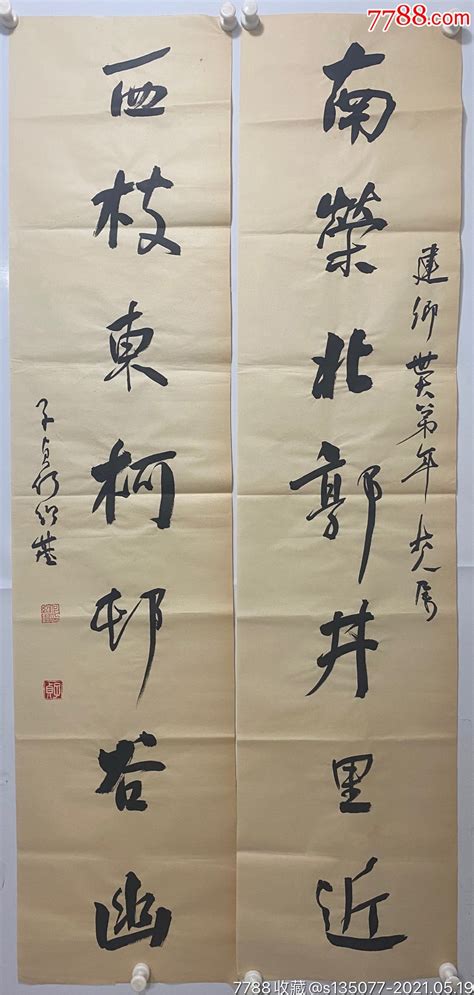 7788.com
南荣北郭井里近
建卿世大弟年枕属
西枝東柯邨谷幽
子贞何绍基
7788收藏@s135077-2021.05.19